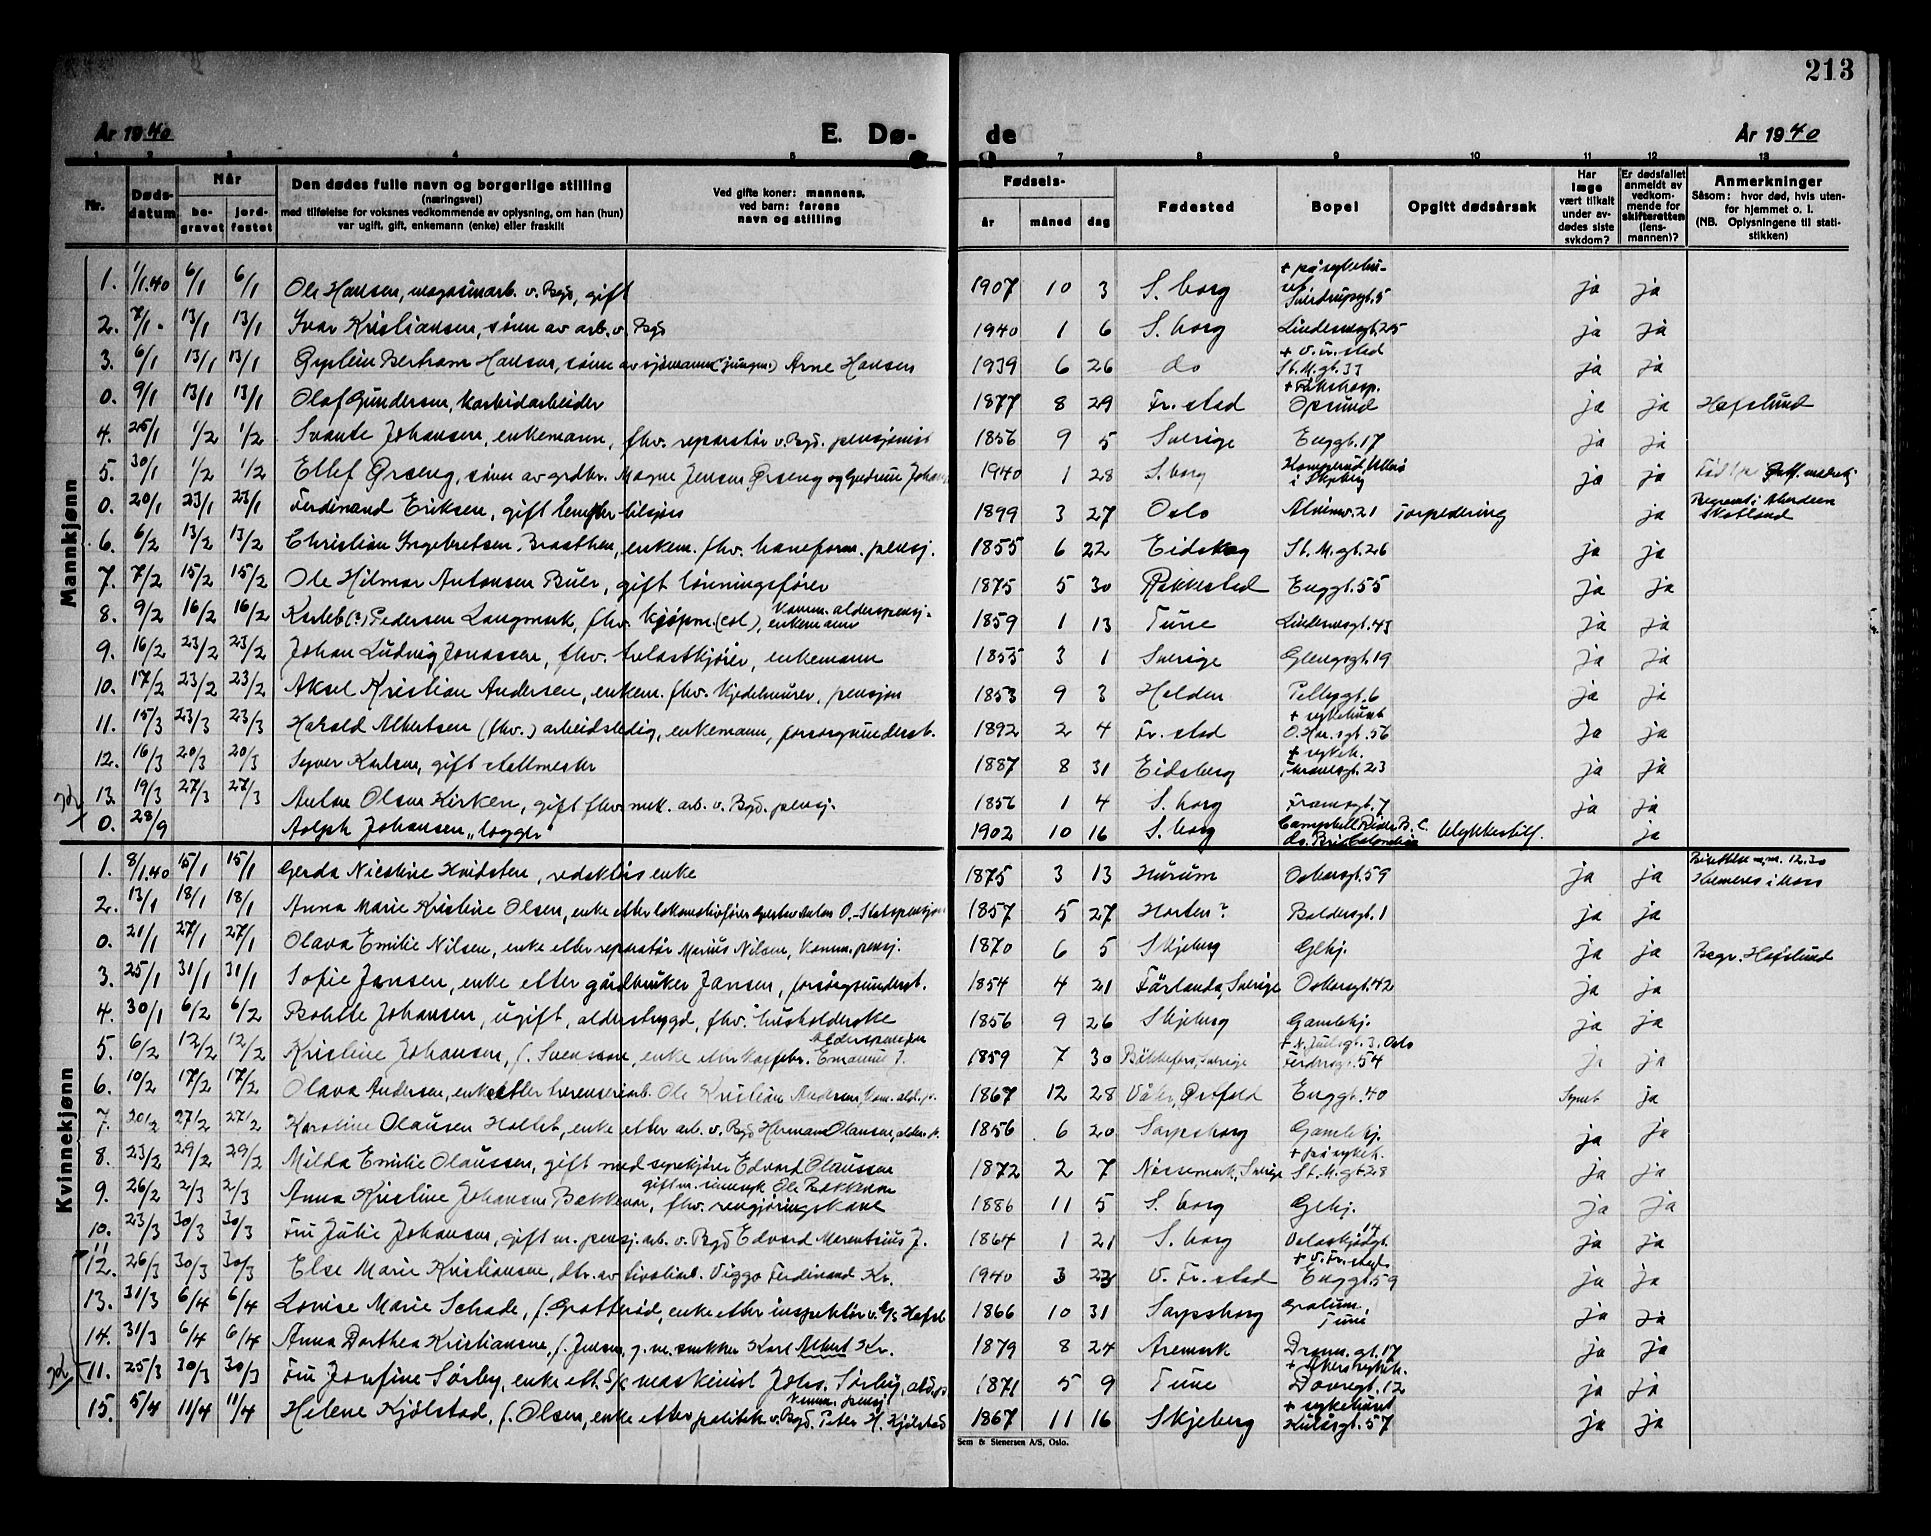 213
År 1940 E. Dø- de År 1940
1 2 3 4 5 7 8 9 10 11 12 13
Nr. Døds-datum Når be-gravet jord-festet
Den dødes fulle navn og borgerlige stilling
(næringsvei)
med tilføielse for voksnes vedkommende av oplysning, om han (hun)
var ugift, gift, enkemann (enke) eller fraskilt
Ved gifte koner: mannens,
ved barn: farens
navn og stilling
Fødsels- år måned dag
Fødested Bopel Opgitt dødsårsak
Har læge vært tilkalt under av-dødes siste sykdom?
Er dødsfallet anmeldt av vedkom-mende for skifteretten (lens-mannen)?
Anmerkninger
Såsom: hvor død, hvis uten-
for hjemmet o. l.
(NB. Oplysningene til stati-
stikken)
Mannkjønn
1. 1/1.40 6/1 6/1 Ole Hansen, magasinarb. v. Bgd, gift 1907 10 3 S. borg + på sykehu-set Sverdrupsgt. 5 ja ja
2. 7/1 - 13/1 13/1 Ivar Kristiansen, sønn av arb. v. Bgd 1940 1 6 S. borg Lindemsgt. 25 ja ja
3. 6/1 13/1 13/1 Bertram Hansen, sønn av sjømann (jungm.) Arne Hansen 1939 6 26 do + v. Fr. stad St. M. gt. 33 ja ja
0. 9/1 13/1 13/1 Olaf Gundersen, karbidarbeider 1877 8 29 Fr. stad Opsund ja ja Hafslund
4. 25/1 1/2 1/2 Svante Johansen, enkemann, fhv. reparatør v. Bgd. pensjonist 1856 9 5 Sverige Enggt. 17 ja ja
5. 30/1 1/2 1/2 Ellef Ørseng, sønn av grdbr. Magne Jensen Ørseng og Gudrun 1940 1 28 S. borg i Skjeberg ja ja
0. 20/1 23/1 23/1 Ferdinand Eriksen, gift 1899 3 27 Oslo Alvimv. 21 Torpedering ja Begravet i Aberdeen Skotland
6. 6/2 13/2 13/2 Christian Ingebretsen Braathen, enkem. fhv. baneform. pensj. 1855 6 22 Eidskog St. M. gt. 26 ja ja
7. 7/2 15/2 15/2 Ole Hilmar Antonsen Buer, gift lønningsfører 1875 5 30 Rakkestad Enggt. 55 ja ja
8. 9/2 16/2 16/2 Karleb (?) Pedersen Langmark, fhv. kjøpm. (col), enkemann Komm. alderspensj. 1859 1 13 Tune Lindemsgt. 43 ja ja
9. 16/2 23/2 23/2 Johan Ludvig Jonassen, fhv. belastkjører, enkemann 1855 3 1 Sverige Glengsgt. 19 ja ja
10. 17/2 23/2 23/2 Aksel Kristian Andersen, enkem. fhv. kjedelmurer, pensjon 1853 9 3 Halden Pellygt. 6 ja ja
11. 15/3 23/3 23/3 Harald Albertsen (fhv.) arbeidsledig, enkemann, forsorgsunderst. 1892 2 4 Fr. stad + sykehuset O. Har. sgt. 56 ja ja
12. 16/3 20/3 20/3 Syver Karlsen, gift stallmester 1887 8 31 Eidsberg + sykeh. 23 ja ja
13. 19/3 27/3 27/3 Anton Olsen Kirken, gift fhv. mek. arb. v. Bgd. pensj. 1856 1 4 S. borg Framsgt. 7 ja ja
0. 28/9 Adolph Johansen "logger" 1902 10 16 S. borg Campbell River B. C. do. Brit. Colombia Ulykkestilf. ja
Kvinnekjønn
1. 8/1.40 15/1 15/1 Gerda Nicoline Kvidsten, redskløs enke 1875 3 13 Hurum Oskarsgt. 59 ja ja Kremeres i Moss
2. 13/1 18/1 18/1 Anna Marie Kristine Olsen, enke etter lokomotivfører Gustav Anton O. - Statspensjon 1857 5 27 Horten? Baldersgt. 1 ja ja
0. 21/1 27/1 27/1 Olava Emilie Nilsen, enke etter reparatør Marius Nilsen, Komm. pensj. 1870 6 5 Skjeberg Glhj. ja ja Begr. Hafslund
3. 25/1 31/1 31/1 Sofie Jansen, enke etter gårdbruker Jansen, forsorgsunderst. 1854 4 21 Färlanda, Sverige Oskarsgt. 42 ja ja
4. 30/1 6/2 6/2 Bolette Johansen, ugift, alderstrygd, fhv. husholderske 1856 9 26 Skjeberg Gamlehj. ja ja
5. 6/2 12/2 12/2 Kristine Johansen, f. Svensson, enke etter Emanuel J. Alderspensjon 1859 7 30 Bäkkefors, Sverige + N. Juelsgt. 3. Oslo Ferdersgt. 54 ja ja
6. 10/2 17/2 17/2 Olava Andersen, enke etter Ole Kristian Andersen, Kom. ald. p. 1867 12 28 Våler, Østfold Enggt. 40 Synet ja
7. 20/2 27/2 27/2 Karoline Olausen Hollet, enke etter arb. v. Bgd Herman Olausen, alders p. 1856 6 20 Sarpsborg Gamlehj. ja ja
8. 23/2 29/2 29/2 Milda Emilie Olaussen, gift med sepekjører Edvard Olaussen 1872 2 7 Nössemark, Sverige + på sykeh. St. M. gt. 28 ja ja
9. 26/2 2/3 2/3 Anna Kristine Johansen Bakkemar, fhv. rengjøringskone gift m. Ole Bakkemar 1886 11 5 S. borg Glhj. ja ja
10. 23/3 30/3 30/3 Fru Julie Johansen, gift m. pensj. arb. v. Bgd Edvard Marentsius J. 1864 1 21 S. borg 14 ja ja
11 12. 26/3 30/3 30/3 Else Marie Kristiansen, dtr. av tivoliarb. Viggo Ferdinand Kr. 1940 3 23 v. Fr. stad + v. Fr. stad. Enggt. 59 ja ja
13. 31/3 6/4 6/4 Lovise Marie Schade, f. Gratterød, enke etter inspektør v. A/S Hafsl 1866 10 31 Sarpsborg Gralum, Tune ja ja
14. 31/3 6/4 6/4 Anna Dorthea Kristiansen, f. Jensen, g. m. snekker Karl Albert Kr. 1879 8 24 Aremark Dronn. gt. 17 ja ja
11. 25/3 30/3 30/3 Fru Josefine Sørby, enke ett. maskinist Johs. Sørby, ald. p. 1871 5 9 Tune + Aker sykeh. Dovregt. 12 ja ja
15. 5/4 11/4 11/4 Helene Kjølstad, f. Olsen, enke etter politik. v. Bgd. Peter H. Kjølstad Komm. pensj. 1867 11 16 Skjeberg + sykehuset Kulåsgt. 57 ja ja
Sem & Stenersen A/S, Oslo.